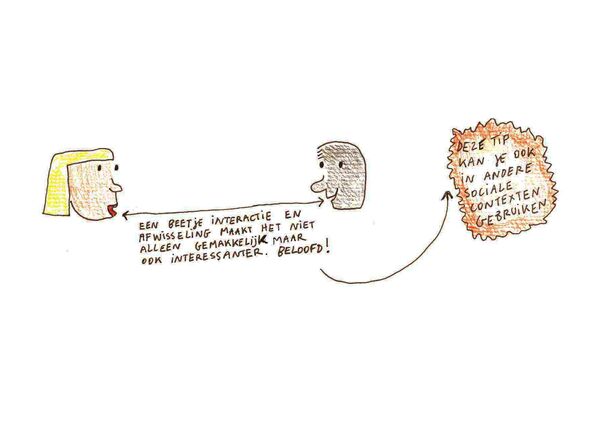 EEN BEETJE INTERACTIE EN
AFWISSELING MAAKT HET NIET
ALLEEN GEMAKKELIJK MAAR
OOK INTERESSANTER. BELOOFD!
DEZE TIP
KAN JE OOK
IN ANDERE
SOCIALE
CONTEXTEN
GEBRUIKEN